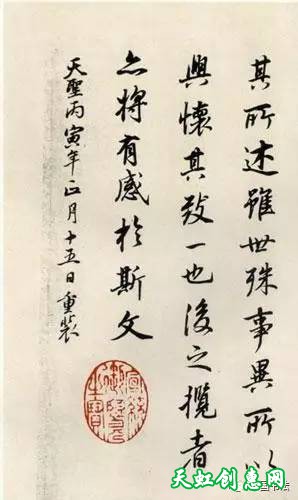 其所述雖世殊事異所以
興懷其致一也後之攬者
亦將有感於斯文
天聖丙寅年正月十五日重裝
宣統御覽之寶
天虹创意网